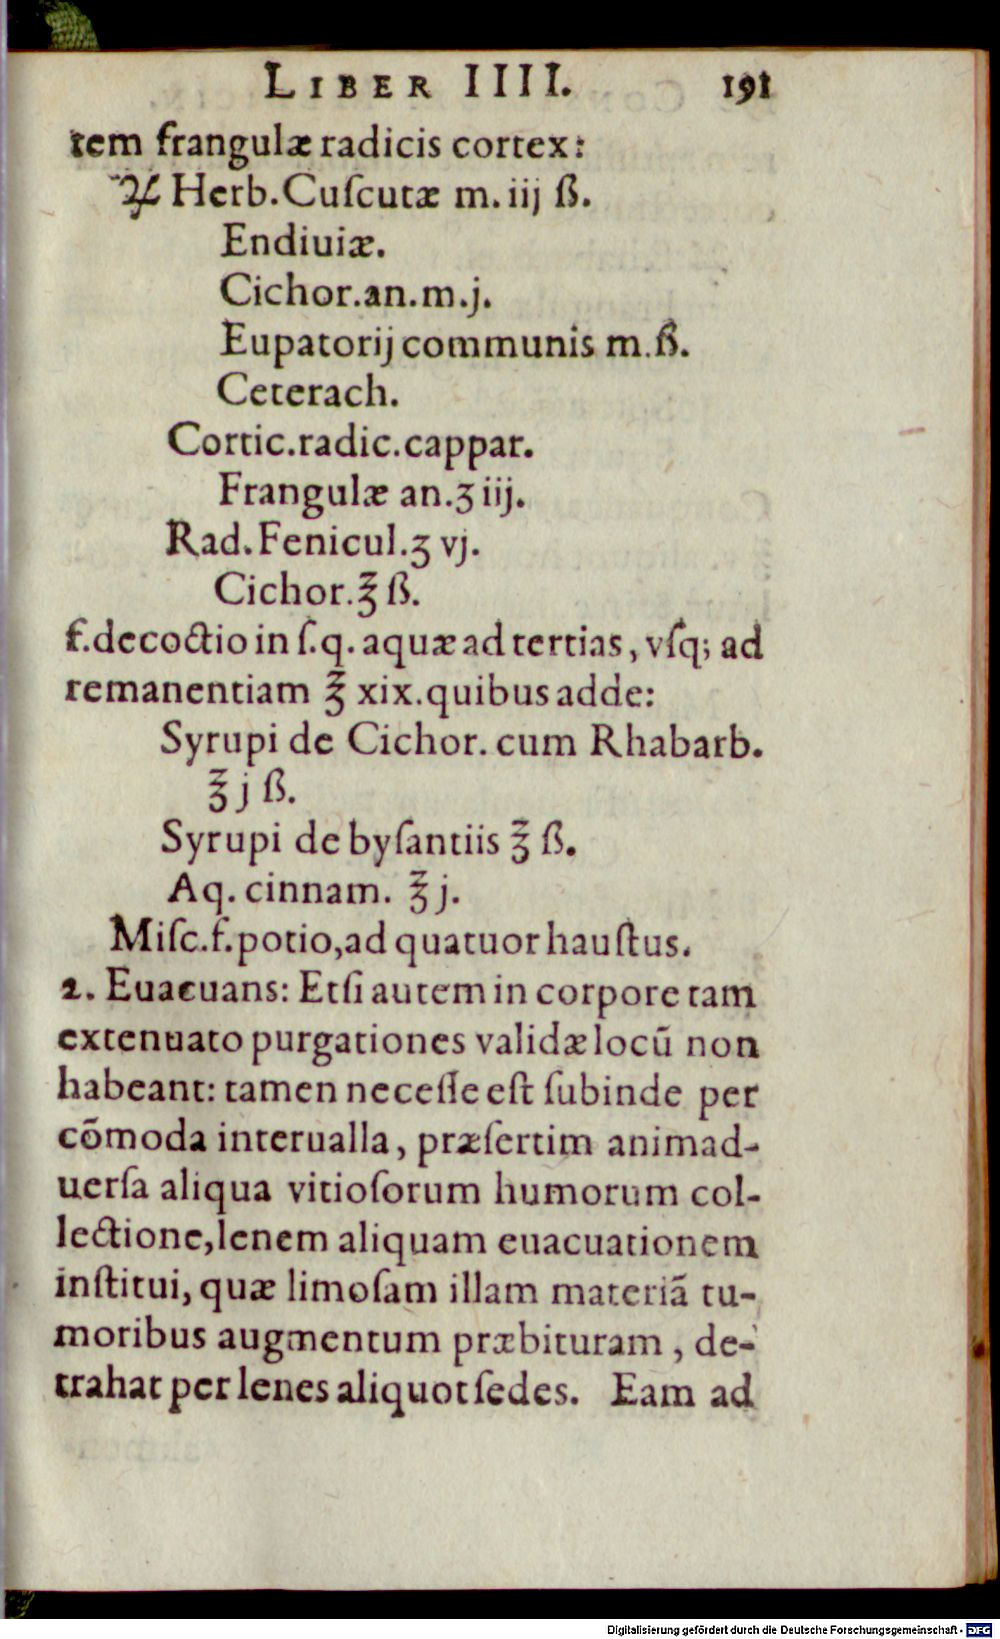 LIBER IIII. 191
tem frangulæ radicis cortex:
♃ Herb. Cuſcutæ m. iij ß.
Endiuiæ.
Cichor. an. m. j.
Eupatorij communis m. ß.
Ceterach.
Cortic. radic. cappar.
Frangulæ an. ʒ iij.
Rad. Fenicul. ʒ vj.
Cichor. ℥ ß.
f. decoctio in ſ. q. aquæ ad tertias, vſq; ad
remanentiam ℥ xix. quibus adde:
Syrupi de Cichor. cum Rhabarb.
℥ j ß.
Syrupi de byſantiis ℥ ß.
Aq. cinnam. ℥ j.
Miſc. f. potio, ad quatuor hauſtus.
2. Euacuans: Etſi autem in corpore tam
extenuato purgationes validæ locū non
habeant: tamen neceſſe eſt ſubinde per
cōmoda interualla, præſertim animad-
uerſa aliqua vitioſorum humorum col-
lectione, lenem aliquam euacuationem
inſtitui, quæ limoſam illam materiã tu-
moribus augmentum præbituram, de-
trahat per lenes aliquot ſedes. Eam ad
Digitalisierung gefördert durch die Deutsche Forschungsgemeinschaft - DFG